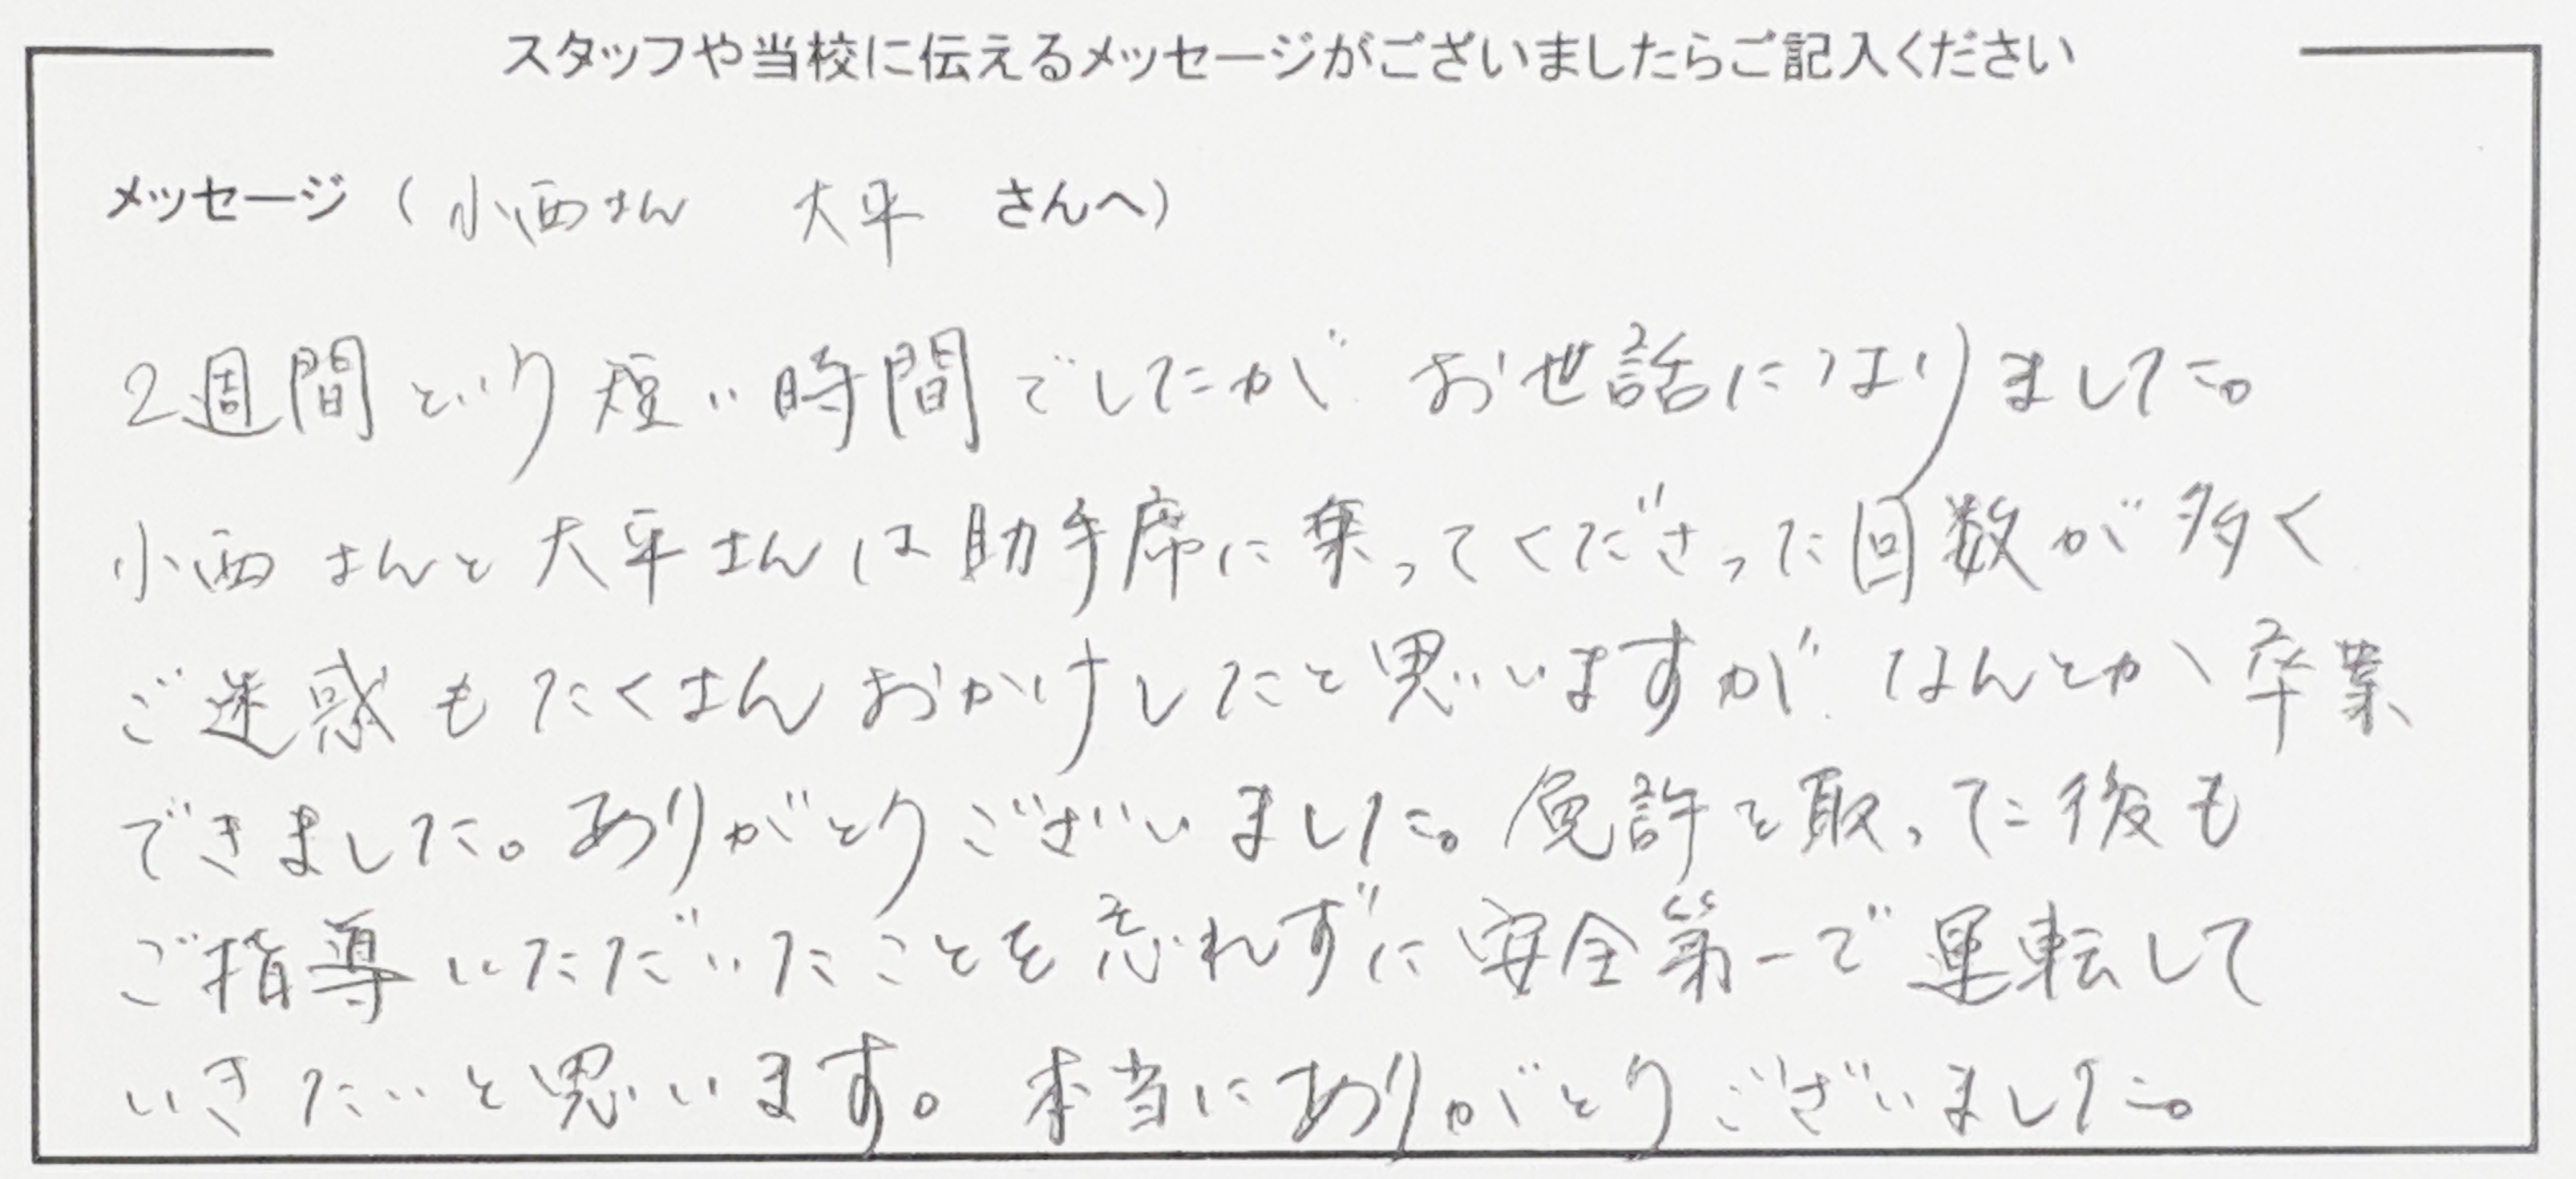 スタッフや当校に伝えるメッセージがございましたらご記入ください
メッセージ（小西さん 大平 さんへ）
2週間という短い時間でしたが お世話になりました。
小西さんと大平さんは助手席に乗ってくださった回数が多く
ご迷惑もたくさんおかけしたと思いますが なんとか卒業
できました。ありがとうございました。免許を取った後も
ご指導いただいたことを忘れずに安全第一で運転して
いきたいと思います。本当にありがとうございました。